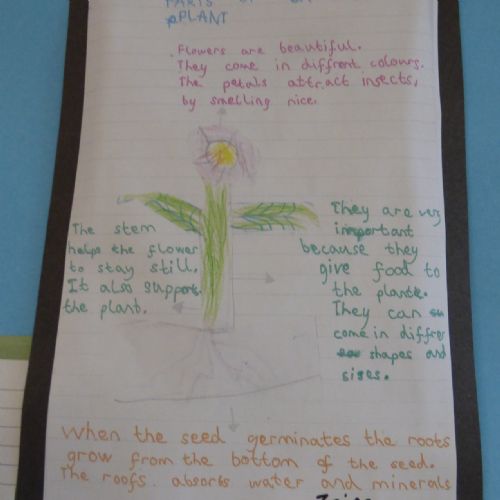 PARTS OF
PLANT
Flowers are beautiful.
They come in diffrent colours.
The petals attract insects,
by smelling nice.
The stem
helps the flower
to stay still.
It also supports
the plant.
They are very
important
because they
give food to
the plants.
They can
come in differ
shapes and
sises.
When the seed germinates the roots
grow from the bottom of the seed.
The roofs absorbs water and minerals